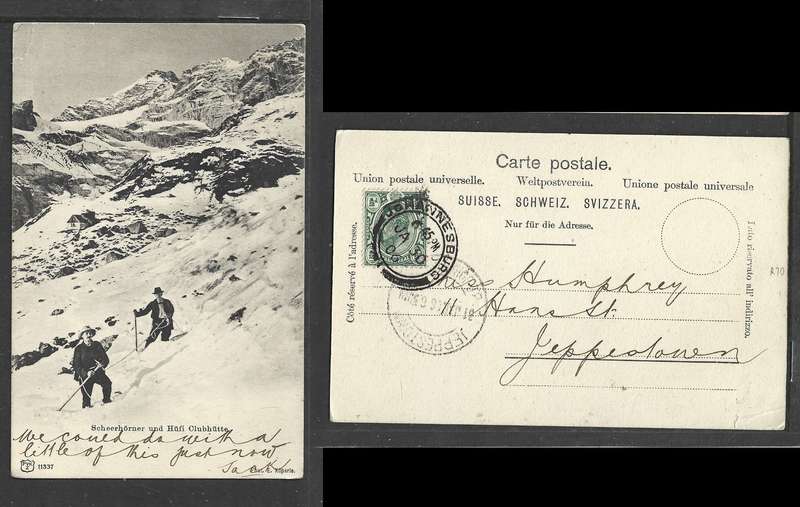 Scheerhörner und Hüfi Clubhütte
We could do with a
little of this just now
Jack
11337
Carte postale.
Union postale universelle. Weltpostverein. Unione postale universale
SUISSE. SCHWEIZ. SVIZZERA.
Nur für die Adresse.
Côté réservé à l'adresse.
Lato riservato all' indirizzo.
JOHANNESBURG
JEPPESTOWN
Humphrey
11 Hans St.
Jeppestown
A70